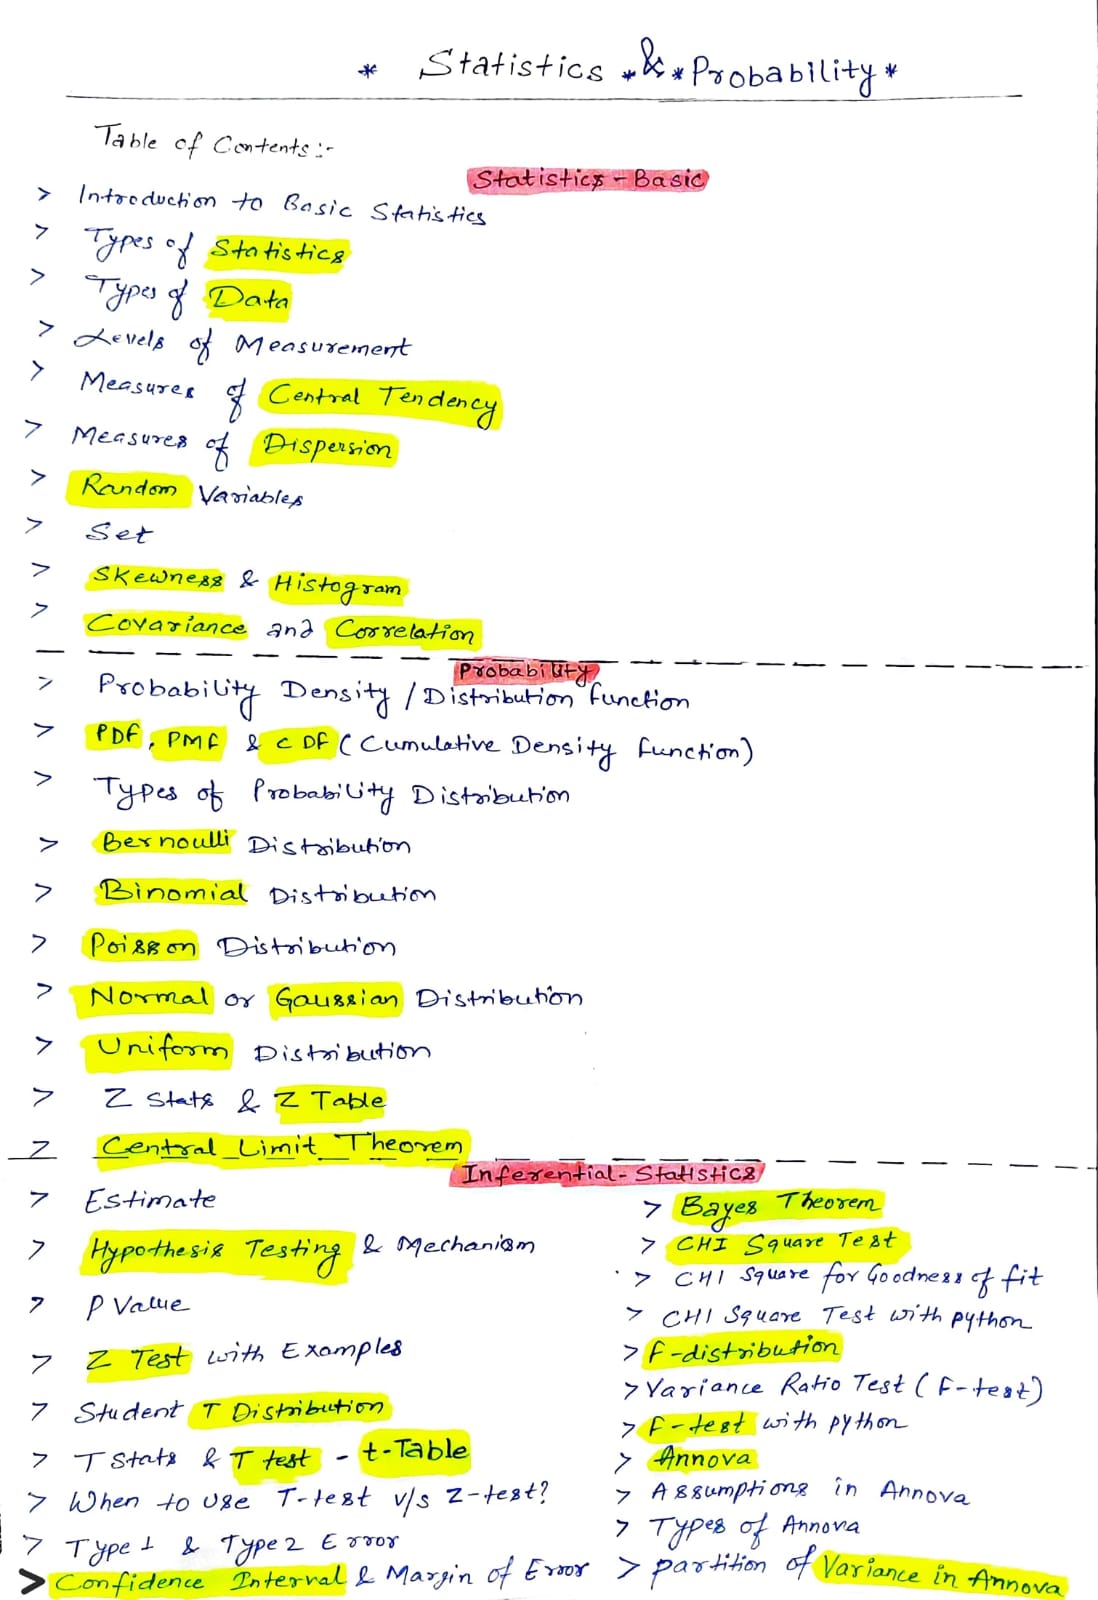 * Statistics * & * Probability *
Table of Contents :-
Statistics - Basic
> Introduction to Basic Statistics
> Types of Statistics
> Types of Data
> Levels of Measurement
> Measures of Central Tendency
> Measures of Dispersion
> Random Variables
> Set
> Skewness & Histogram
> Covariance and Correlation
Probability
> Probability Density / Distribution function
> PDF, PMF & CDF (Cumulative Density function)
> Types of Probability Distribution
> Bernoulli Distribution
> Binomial Distribution
> Poisson Distribution
> Normal or Gaussian Distribution
> Uniform Distribution
> Z Stats & Z Table
> Central Limit Theorem
Inferential - Statistics
> Estimate
> Hypothesis Testing & Mechanism
> P Value
> Z Test with Examples
> Student T Distribution
> T Stats & T test - t-Table
> When to use T-test v/s Z-test?
> Type 1 & Type 2 Error
> Confidence Interval & Margin of Error
> Bayes Theorem
> CHI Square Test
> CHI Square for Goodness of fit
> CHI Square Test with python
> F-distribution
> Variance Ratio Test (F-test)
> F-test with python
> Annova
> Assumptions in Annova
> Types of Annova
> partition of Variance in Annova